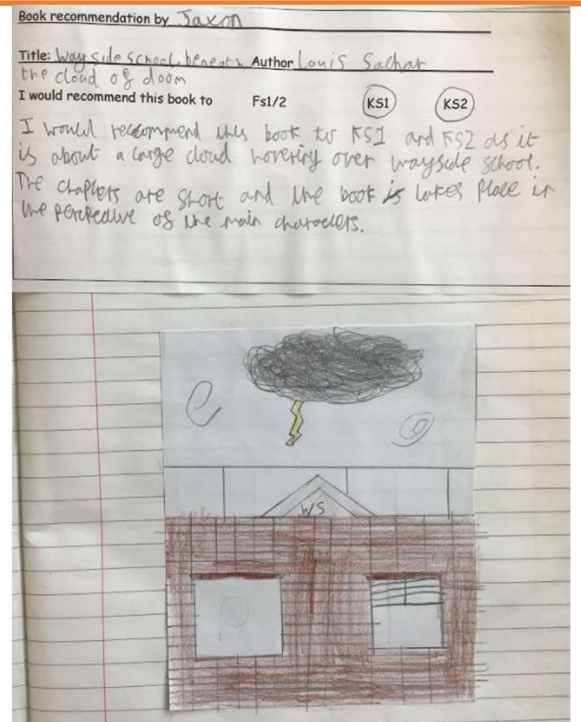 Book recommendation by Jaxon
Title: Wayside school beneath Author Louis Sachar
the cloud of doom
I would recommend this book to Fs1/2 KS1 KS2
I would reccommend this book to KS1 and KS2 as it
is about a large cloud hovering over wayside school.
The chapters are short and the book is takes place in
the perspective of the main characters.
WS